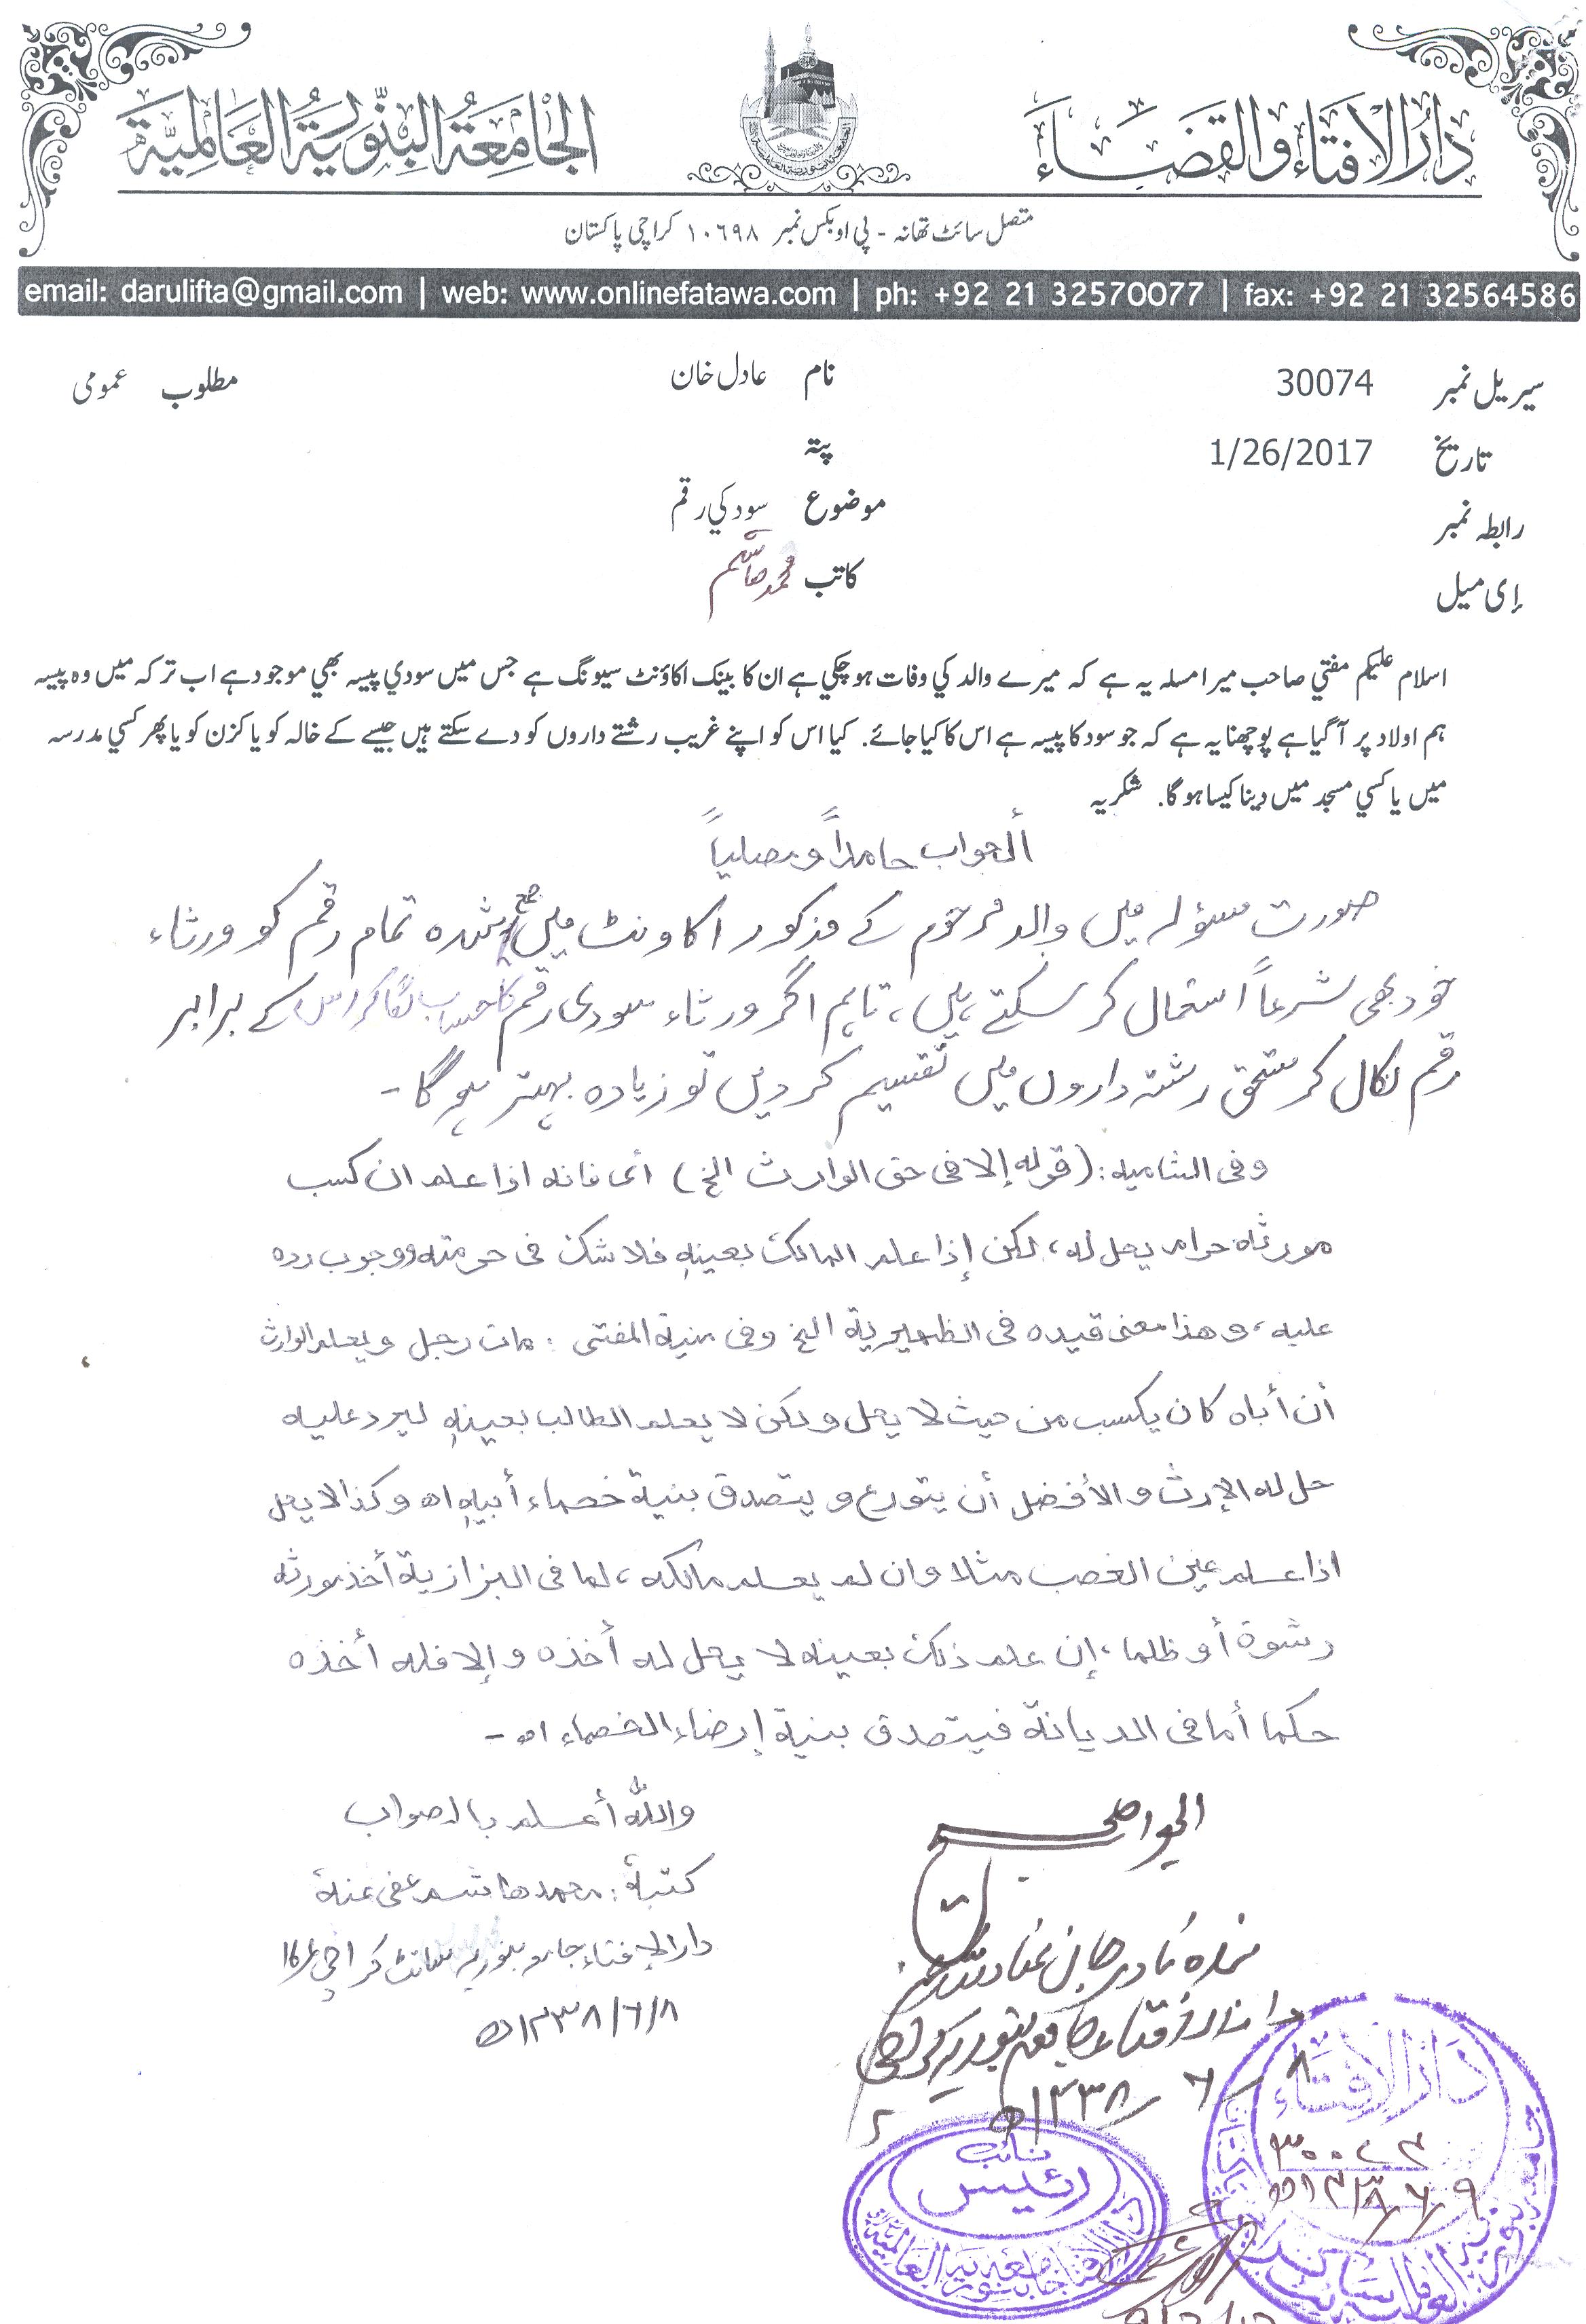 دار الافتاء والقضاء
الجامعة البنورية العالمية
متصل سائٹ تھانہ - پی او بکس نمبر ۱۰۶۹۸ کراچی پاکستان
email: darulifta@gmail.com | web: www.onlinefatawa.com | ph: +92 21 32570077 | fax: +92 21 32564586
سیریل نمبر 30074 نام عادل خان مطلوب عمومی
تاریخ 1/26/2017 پتہ
رابطہ نمبر موضوع سود کي رقم
إی میل کاتب محمد هاشم
اسلام علیکم مفتي صاحب میرا مسلہ یہ ہے کہ میرے والد کي وفات ہو چکي ہے ان کا بینک اکاؤنٹ سیونگ ہے جس میں سودي پیسہ بھي موجود ہے اب ترکہ میں وہ پیسہ
ہم اولاد پر آگیا ہے پوچھنا یہ ہے کہ جو سود کا پیسہ ہے اس کا کیا جائے. کیا اس کو اپنے غریب رشتے داروں کو دے سکتے ہیں جیسے کے خالہ کو یا کزن کو یا پھر کسي مدرسہ
میں یا کسي مسجد میں دینا کیسا ہو گا. شکریہ
ألجواب حامداً ومصلياً
صورت مسؤلہ میں والد مرحوم کے مذکور اکاونٹ میں جمع شدہ تمام رقم کو ورثاء
خود بھی شرعاً استعمال کر سکتے ہیں، تاہم اگر ورثاء سودی رقم کا حساب لگا کر اس کے برابر
رقم نکال کر مستحق رشتہ داروں میں تقسیم کر دیں تو زیادہ بہتر ہوگا -
وفى الشاميه: (قوله إلا فى حق الوارث الخ) أى فانه اذا علم ان كسب
مورثه حرام يحل له، لكن إذا علم المالك بعينهِ فلا شك فى حرمته ووجوب رده
عليه، وهذا معنى قيده فى الظهيرية الخ وفى منية المفتى: مات رجل ويعلم الوارث
أن أباه كان يكسب من حيث لا يحل ولكن لا يعلم الطالب بعينهِ ليرد عليه
حل له الإرث والأفضل أن يتورع ويتصدق بنية خصماء أبيهِ اه وكذا لا يحل
اذا علم عين الغصب مثلا وان لم يعلم مالكه، لما فى البزازية أخذ مورثه
رشوة أو ظلما، إن علم ذلك بعينه لا يحل له أخذه وإلا فله أخذه
حكما أما فى الديانة فيتصدق بنية إرضاء الخصماء اه -
والله أعلم بالصواب
كتبهٗ: محمد هاشم عفى عنه
دار الإفتاء جامعہ بنوریہ سائٹ کراچی ۱۶
۸/۶/۱۴۳۸ھ
الجواب صحیح
بندہ نادر جان عفا اللہ عنہ
دار الافتاء جامعہ بنوریہ کراچی
۸/۶/۱۴۳۸ھ
دار الافتاء
۳۰۰۷۴
۹/۶/۱۴۳۸ھ
نائب
رئیس
دار الافتاء جامعہ بنوریہ العالمیہ